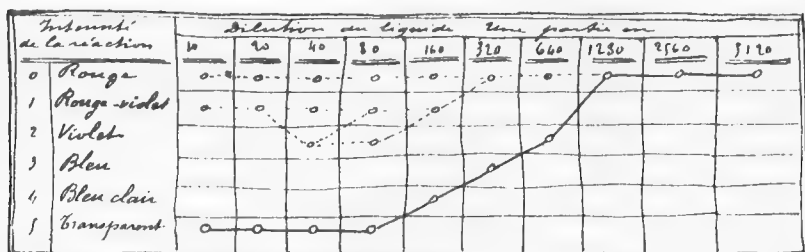 Intensité de la réaction
Dilution du liquide Une partie en
10 20 40 80 160 320 640 1280 2560 5120
0 Rouge
1 Rouge-violet
2 Violet
3 Bleu
4 Bleu clair
5 Transparent